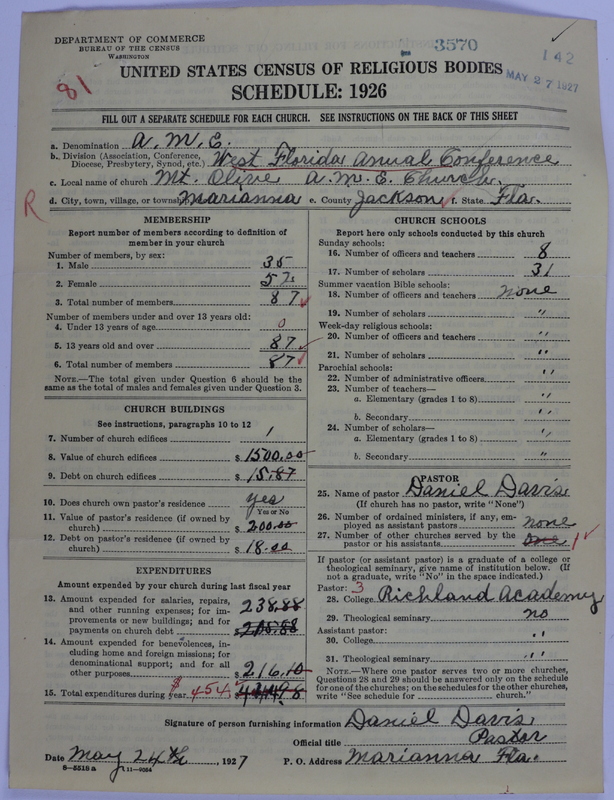 DEPARTMENT OF COMMERCE
BUREAU OF THE CENSUS
WASHINGTON
3570
142
MAY 27 1927
81
UNITED STATES CENSUS OF RELIGIOUS BODIES
SCHEDULE: 1926
FILL OUT A SEPARATE SCHEDULE FOR EACH CHURCH. SEE INSTRUCTIONS ON THE BACK OF THIS SHEET
a. Denomination A. M. E.
b. Division (Association, Conference, Diocese, Presbytery, Synod, etc.) West Florida Anual Conference
c. Local name of church Mt. Olive A. M. E. Church
R
d. City, town, village, or township Marianna e. County Jackson f. State Fla.
MEMBERSHIP
Report number of members according to definition of
member in your church
Number of members, by sex:
1. Male 35
2. Female 52
3. Total number of members 87
Number of members under and over 13 years old:
4. Under 13 years of age 0
5. 13 years old and over 87
6. Total number of members 87
NOTE.—The total given under Question 6 should be the
same as the total of males and females given under Question 3.
CHURCH BUILDINGS
See instructions, paragraphs 10 to 12
7. Number of church edifices 1
8. Value of church edifices $ 1500.00
9. Debt on church edifices $ 15.87
10. Does church own pastor's residence yes
Yes or No
11. Value of pastor's residence (if owned by
church) $ 200.00
12. Debt on pastor's residence (if owned by
church) $ 18.00
EXPENDITURES
Amount expended by your church during last fiscal year
13. Amount expended for salaries, repairs,
and other running expenses; for im-
provements or new buildings; and for
payments on church debt $ 238.88
14. Amount expended for benevolences, in-
cluding home and foreign missions; for
denominational support; and for all
other purposes $ 216.10
15. Total expenditures during year $ 454
CHURCH SCHOOLS
Report here only schools conducted by this church
Sunday schools:
16. Number of officers and teachers 8
17. Number of scholars 31
Summer vacation Bible schools:
18. Number of officers and teachers none
19. Number of scholars "
Week-day religious schools:
20. Number of officers and teachers "
21. Number of scholars "
Parochial schools:
22. Number of administrative officers "
23. Number of teachers—
a. Elementary (grades 1 to 8) "
b. Secondary "
24. Number of scholars—
a. Elementary (grades 1 to 8) "
b. Secondary "
PASTOR
25. Name of pastor Daniel Davis
(If church has no pastor, write "None")
26. Number of ordained ministers, if any, em-
ployed as assistant pastors none
27. Number of other churches served by the
pastor or his assistants one 1
If pastor (or assistant pastor) is a graduate of a college or
theological seminary, give name of institution below. (If
not a graduate, write "No" in the space indicated.)
Pastor: 3
28. College Richland Academy
29. Theological seminary no
Assistant pastor:
30. College "
31. Theological seminary "
NOTE.—Where one pastor serves two or more churches,
Questions 28 and 29 should be answered only on the schedule
for one of the churches; on the schedules for the other churches,
write "See schedule for church."
Signature of person furnishing information Daniel Davis
Official title Pastor
Date May 24th, 1927 P. O. Address Marianna Fla.
8—5518 a